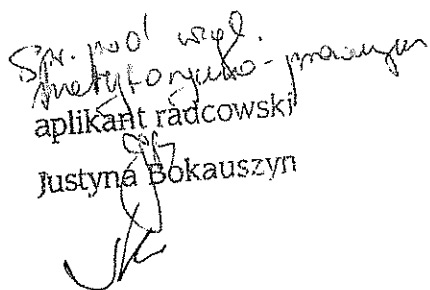 Spr. pod wzgl.
merytoryczno-prawnym
aplikant radcowski
Justyna Bokauszyn